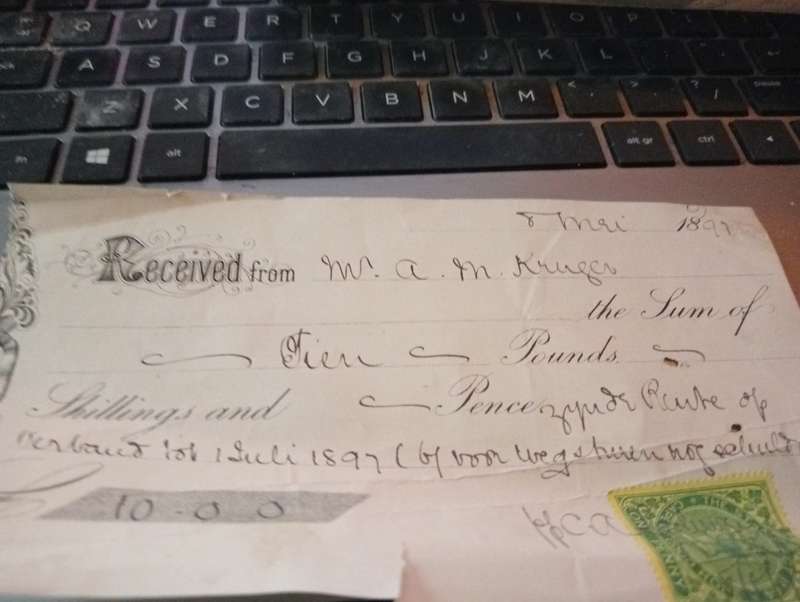 Q W E R T Y U I O P
A S D F G H J K L
Z X C V B N M < , > . ? /
fn alt alt gr ctrl
8 Mei 1897
Received from Mr. A. M. Kruger
the Sum of
Tien Pounds
Shillings and Pence zynde Rente op
verband tot 1 Juli 1897 (6/ voor nog
10 - 0 0
THE